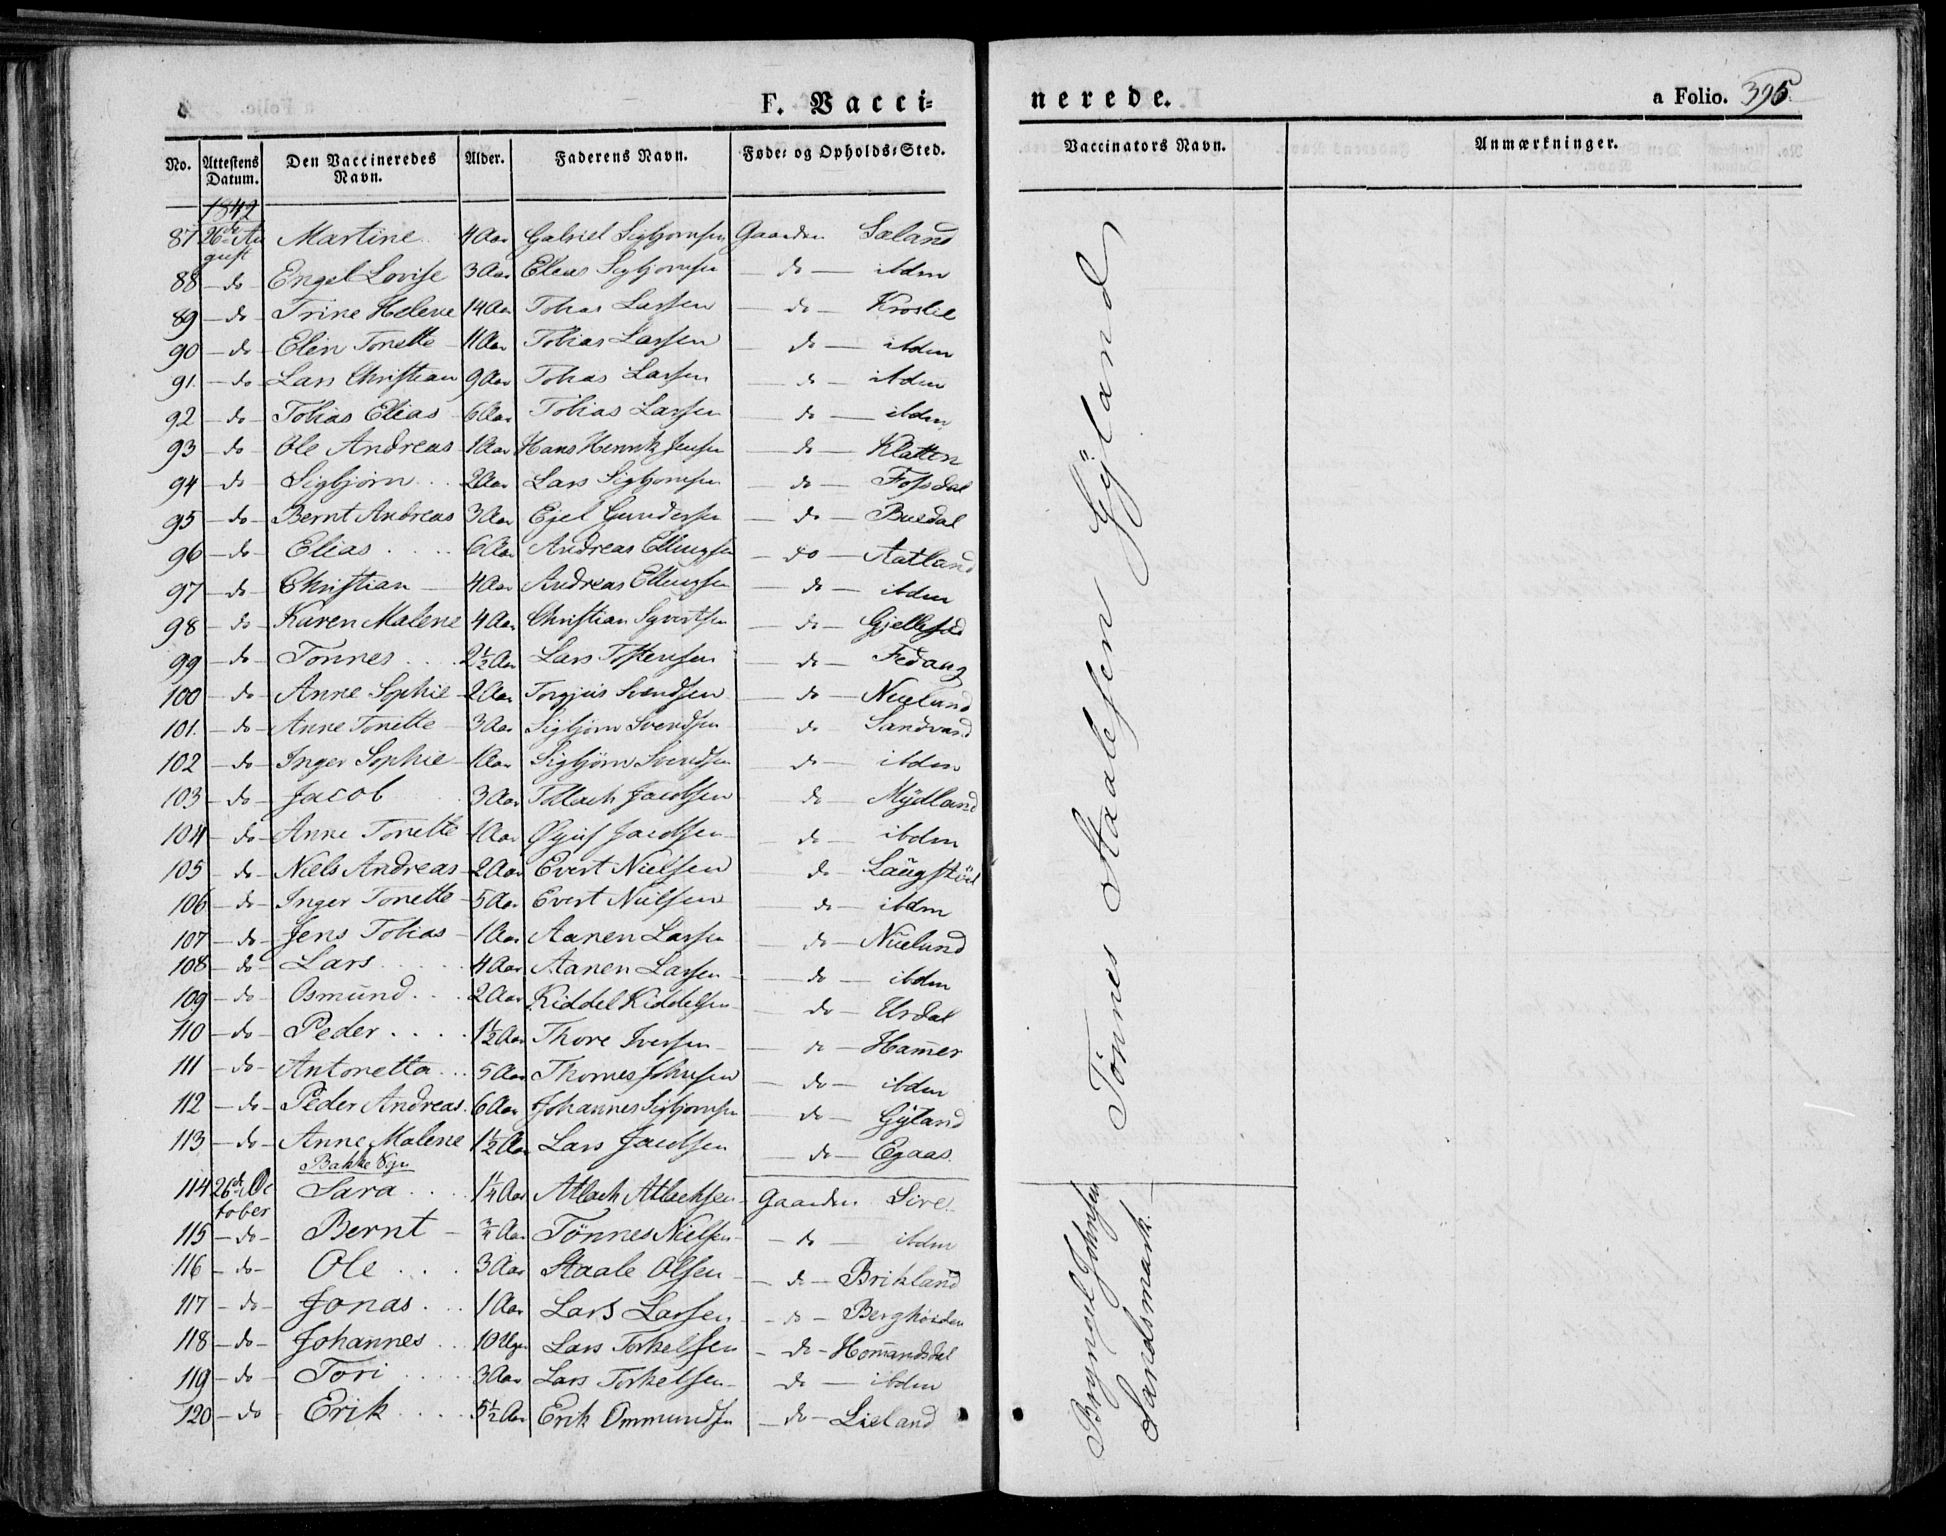 F. Vacci=
No. Attestens Datum. Den Vaccineredes Navn. Alder. Faderens Navn. Føde- og Opholds-Sted.
1842
87 26de Au gust Martine 4 Aar Gabriel Sigbjornsen Gaarden Sæland
88 – do – Engel Lovise 3 Aar Elias Sigbjornsen – do – ibdm
89 – do Trine Helene 14 Aar Tobias Larsen – do – Kroslie
90 – do – Elen Tonette 11 Aar Tobias Larsen – do – ibdm
91. – do – Lars Christian 9 Aar Tobias Larsen – do – ibdm
92 – do – Tobias Elias 6 Aar Tobias Larsen – do – ibdm
93 – do – Ole Andreas 1 Aar Hans Henrik Jensen – do – Klatten
94 – do – Sigbjörn 2 Aar Lars Sigbjornsen – do – Fossdal
95 – do – Bernt Andreas 3 Aar Egel Gundersen – do – Buedal
96 – do – Elias 6 Aar Andreas Ellingsen – do – Aatland
97 – do – Christian 4 Aar Andreas Ellingsen – do – ibdm
98 – do – Karen Malene 4 Aar Christian Syvertsen – do –
99 – do – Tonnes 2½ Aar Lars Tostensen – do –
100 – do – Anne Sophie 2 Aar Torgius Svendsen – do – Nuelund
101. – do – Anne Tonette 3 Aar Sigbjörn Svendsen do – Sandvand
102 – do – Inger Sophie 1 Aar Sigbjörn Svendsen – do – ibdm
103 – do – Jacob 3 Aar Tollach Jacobsen do – Mÿdland
104 – do – Anne Tonette 1 Aar Jacobsen do – ibdm
105 – do – Niels Andreas 2 Aar Evert Nielsen do –
106 – do – Inger Tonette 5 Aar Evert Nielsen – do – ibdm
107 – do – Jens Tobias 1 Aar Aanen Larsen – do – Nuelund
108 – do – Lars 4 Aar Aanen Larsen – do – ibdm
109 – do – Osmund 2 Aar Kiddel Kiddelsen – do – Urdal
110 – do – Peder 1½ Aar Thore Iversen – do – Hamer
111 – do – Antonetta 5 Aar Thomes Johnsen – do – ibdm
112 – do – Peder Andreas 6 Aar Johannes Sigbjornsen – do – Gÿland
113 – do – Anne Malene 1½ Aar Lars Jacobsen – do – Egaas
Bakke Sgn
114 26de Oc tober Sara 1¼ Aar Atlach Atlachsen Gaarden Sire
115 – do – Bernt ¾ Aar Tönnes Nielsen – do – ibdm
116 – do – Ole 3 Aar Staale Olsen – do – Brikland
117 – do – Jonas 1 Aar Lars Larsen – do –
118 – do – Johannes 10 Uger Lars Torkelsen – do – Homandsdal
119 – do – Tori 3 Aar Lars Torkelsen – do – ibdm
120 – do Erik 5½ Aar Erik Ommundsen – do – Lieland
nerede.
a Folio. 395
Vaccinators Navn. Anmærkninger.
Tönnes Staalesen Gÿland
Bryngel Johnsen
Sandsmark